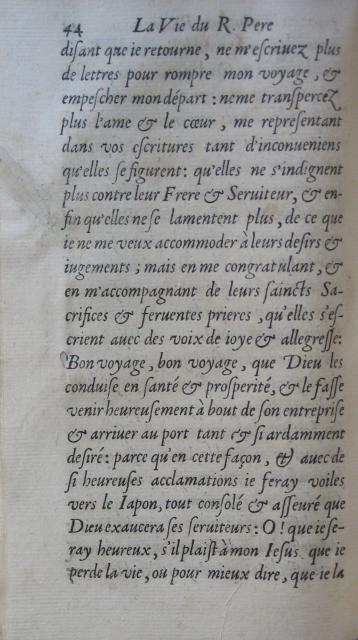 44 La Vie du R. Pere
diſant que ie retourne, ne m'eſcriuez plus
de lettres pour rompre mon voyage, &
empeſcher mon départ : ne me tranſpercez
plus l'ame & le cœur, me repreſentant
dans vos eſcritures tant d'inconueniens
qu'elles ſe figurent : qu'elles ne s'indignent
plus contre leur Frere & Seruiteur, & en-
fin qu'elles ne ſe lamentent plus, de ce que
ie ne me veux accommoder à leurs deſirs &
iugements ; mais en me congratulant, &
en m'accompagnant de leurs ſaincts Sa-
crifices & feruentes prieres, qu'elles s'eſ-
crient auec des voix de ioye & allegreſſe:
Bon voyage, bon voyage, que Dieu les
conduiſe en ſanté & proſperité, & le faſſe
venir heureuſement à bout de ſon entrepriſe
& arriuer au port tant & ſi ardamment
deſiré : parce qu'en cette façon, & auec de
ſi heureuſes acclamations ie feray voiles
vers le Iapon, tout conſolé & aſſeuré que
Dieu exaucera ſes ſeruiteurs : O ! que ie ſe-
ray heureux, s'il plaiſt à mon Ieſus que ie
perde la vie, ou pour mieux dire, que ie la